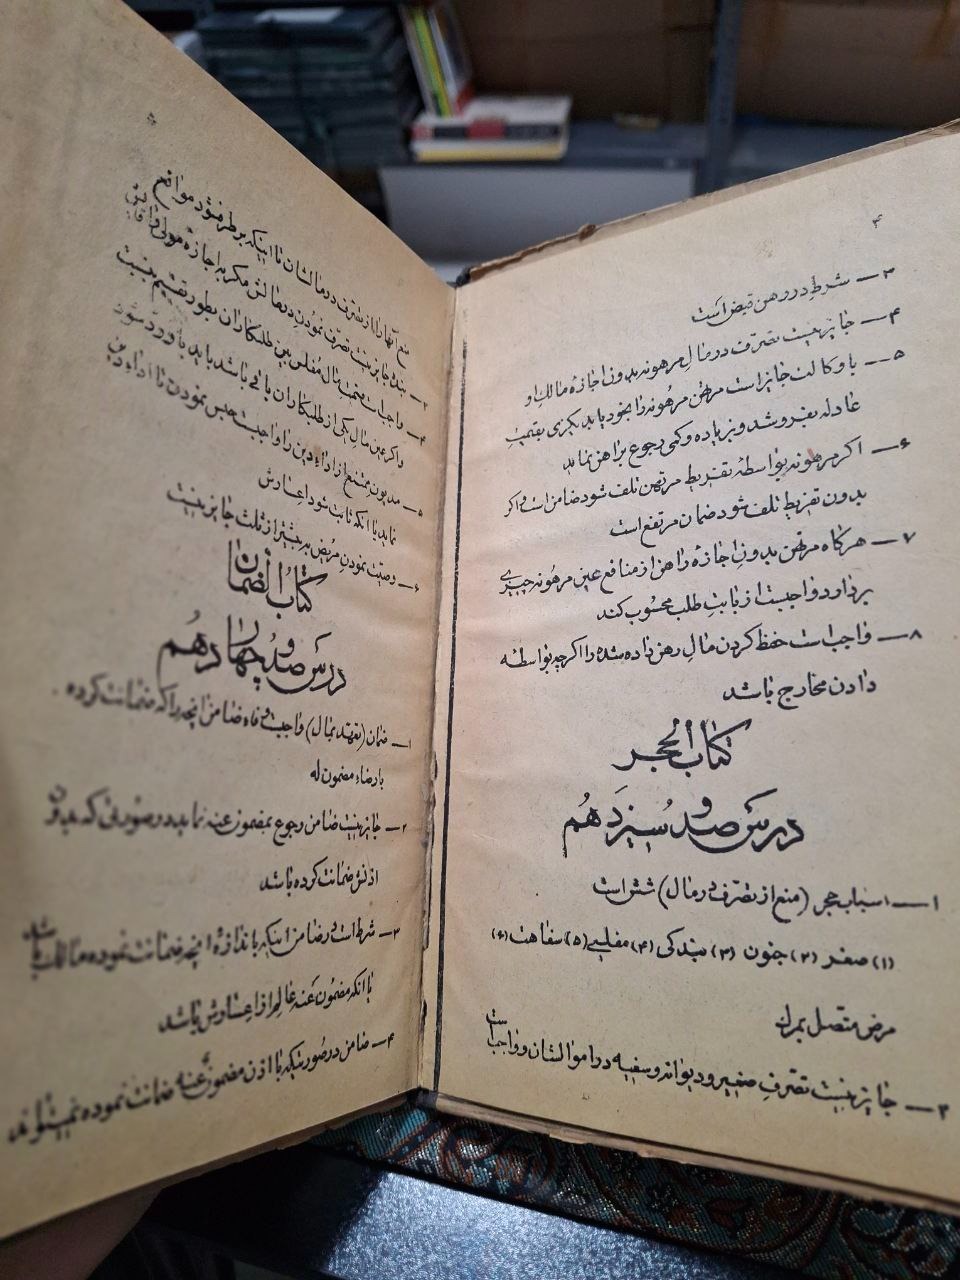 ۴
۳ــ شرط در رهن قبض است
۴ــ جایز نیست تصرف در مال مرهونه بدون اجازه مالک او
۵ــ با وکالت جایز است مرتهن مرهونه را بخود یا بدیگری بقیمت
عادله بفروشد و بزیاده و کمی رجوع براهن نماید
۶ــ اگر مرهونه بواسطه تفریط مرتهن تلف شود ضامن است و اگر
بدون تفریط تلف شود ضمان مرتفع است
۷ــ هرگاه مرتهن بدون اجازه راهن از منافع عین مرهونه چیزی
بردارد واجبست از بابت طلب محسوب کند
۸ــ واجب است حفظ کردن مال رهن داده شده را اگرچه بواسطه
دادن مخارج باشد
کتاب الحجر
درس صد و سیزدهم
۱ــ اسباب حجر (منع از تصرف در مال) شش است
(۱) صغر (۲) جنون (۳) بندگی (۴) مفلسی (۵) سفاهت (۶)
مرض متصل بمرگ
۲ــ جایز نیست تصرف صغیر و دیوانه و سفیه در اموالشان و واجب است
منع آنها را از تصرف در مالشان تا اینکه برطرف شود موانع
۳ــ بنده جایز نیست تصرف نمودن در مالش مگر به اجازه مولی و آقایش
۴ــ واجبست قسمت مال مفلس بین طلبکاران بطور تقسیم بنسبت
و اگر عین مال یکی از طلبکاران باقی باشد باید باو رد شود
۵ــ مدیون ممتنع از اداء دین را واجبست حبس نمودن تا اداء دین
نماید یا آنکه ثابت شود اعسارش
۶ــ وصیت نمودن مریض به بیشتر از ثلث جایز نیست
کتاب الضمان
درس صد و چهاردهم
۱ــ ضمان (تعهد بمال) واجبست وفاء ضامن آنچه را که ضمانت کرده
با رضاء مضمون له
۲ــ جایز نیست ضامن رجوع بمضمون عنه نماید در صورتی که بدون
اذنش ضمانت کرده باشد
۳ــ شرط است در ضامن اینکه باندازه آنچه ضمانت نموده مالک باشد
یا آنکه مضمون عنه عالم از اعسارش باشد
۴ــ ضامن در صورتیکه با اذن مضمون عنه ضمانت نموده نمیتواند